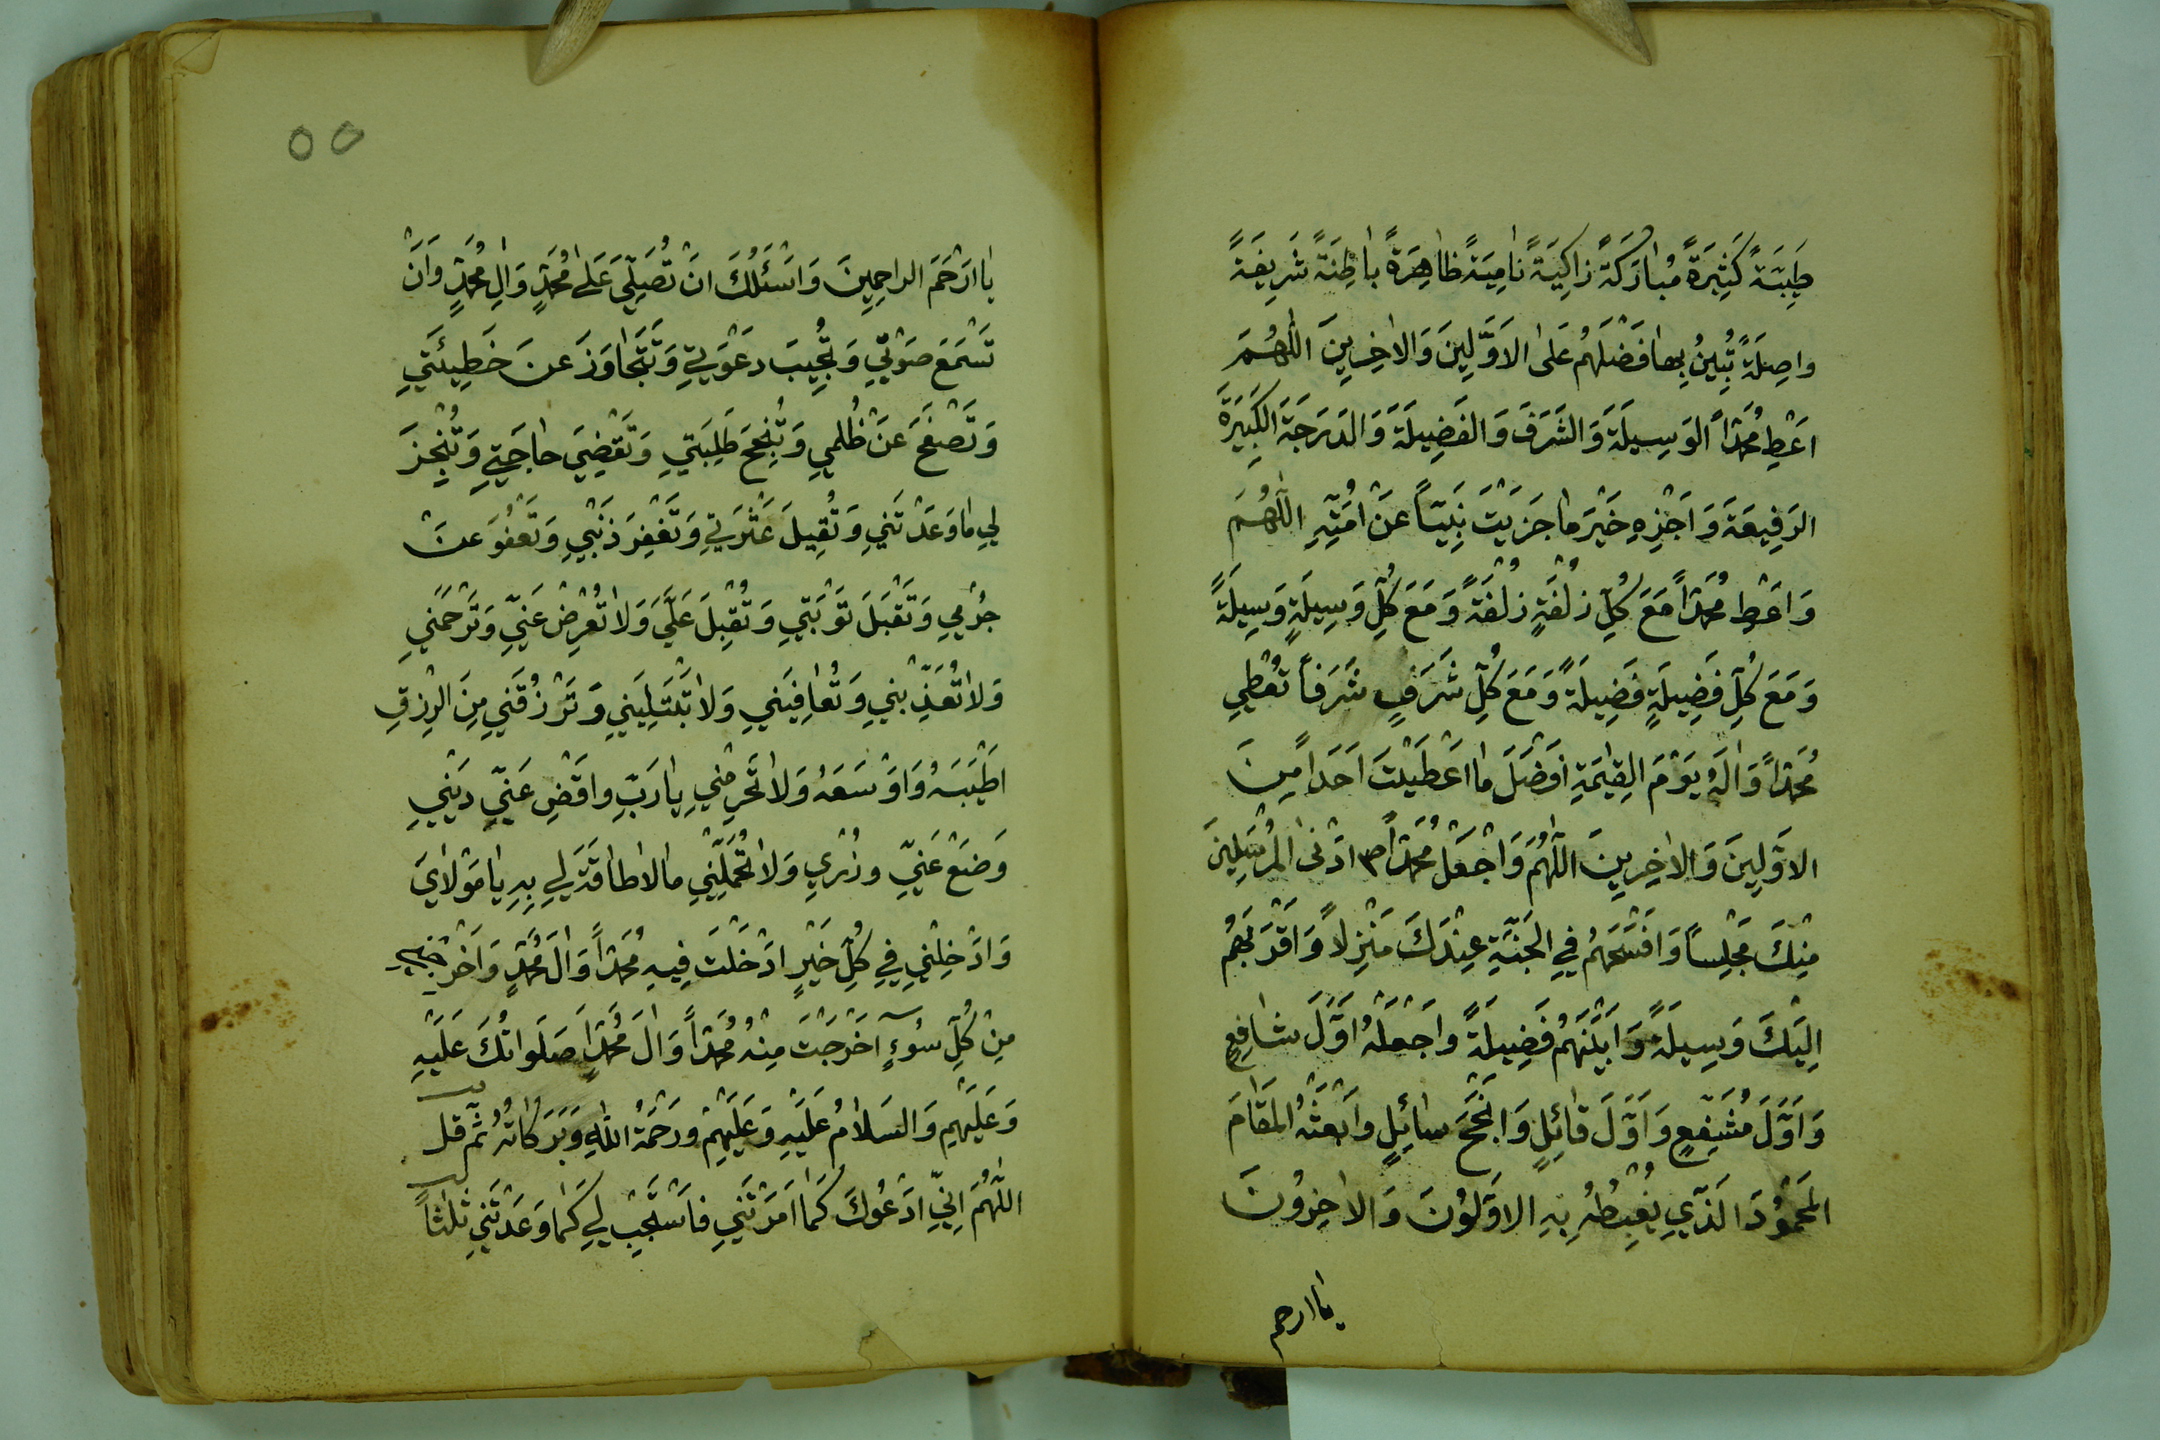 طَيِّبَةً كَثِيرَةً مُبارَكَةً زاكِيَةً نامِيَةً ظاهِرَةً باطِنَةً شَرِيفَةً
واصِلَةً تُبِينُ بِها فَضْلَهُمْ عَلَى الاَوَّلِينَ وَالاخِرِينَ اللّهُمَّ
اَعْطِ مُحَمَّداً الوَسِيلَةَ وَالشَّرَفَ وَالفَضِيلَةَ وَالدَّرَجَةَ الكَبِيَرةَ
الرَفِيعَةَ وَاَجْزِهِ خَيْرَ ما جَزَيْتَ نَبِيّاً عَنْ اُمَّتِهِ اللّهُمَّ
وَاَعْطِ مُحَمَّداً مَعَ كُلِّ زُلْفَةٍ زُلْفَةً وَمَعَ كُلِّ وَسِيلَةٍ وَسِيلَةً
وَمَعَ كُلِّ فَضِيلَةٍ فَضِيلَةً وَمَعَ كُلِّ شَرَفٍ شَرَفاً تُعْطِي
مُحَمَّداً وَالَهُ يَوْمَ القِيٰمَةِ اَفْضَلَ ما اَعْطَيْتَ اَحَداً مِنَ
الاَوَّلِينَ وَالاخِرِينَ اللّهُمَّ وَاجْعَلْ مُحَمَّداً ص اَدْنَى المُرْسَلِينَ
مِنْكَ مَجْلِساً وَاَفْسَحَهُمْ فِي الجَنَّةِ عِنْدَكَ مَنْزِلاً وَاَقْرَبَهُمْ
اِلَيْكَ وَسِيلَةً وَاَبْيَنَهُمْ فَضِيلَةً وَاجْعَلْهُ اَوَّلَ شافِعٍ
وَاَوَّلَ مُشَفَّعٍ وَاَوَّلَ قائِلٍ وَاَنْجَحَ سائِلٍ وابْعَثْهُ المَقامَ
المَحْمُودَ الَّذِي يَغْبِطُهُ بِهِ الاَوَّلُونَ وَالاخِرُونَ
يا ارحم
٥٥
يا اَرْحَمَ الراحِمِينَ وَاَسْئَلُكَ اَنْ تُصَلِّيَ عَلى مُحَمَّدٍ وَالِ مُحَمَّدٍ وَاَنْ
تَسْمَعَ صَوْتِي وَتُجِيبَ دَعْوَتِي وَتَتَجاوَزَ عَنْ خَطِيئَتِي
وَتَصْفَحَ عَنْ ظُلْمِي وَتُنْجِحَ طَلِبَتِي وَتَقْضِيَ حاجَتِي وَتُنْجِزَ
لِي ما وَعَدْتَنِي وَتُقِيلَ عَثْرَتِي وَتَغْفِرَ ذَنْبِي وَتَعْفُوَ عَنْ
جُرْمِي وَتَقْبَلَ تَوْبَتِي وَتُقْبِلَ عَلَيَّ وَلا تُعْرِضْ عَنِّي وَتَرْحَمَنِي
وَلا تُعَذِّبْنِي وَتُعافِيَنِي وَلا تَبْتَلِيَنِي وَتَرْزُقَنِي مِنَ الرِزْقِ
اَطْيَبَهُ وَاَوْسَعَهُ وَلا تَحْرِمْنِي يا رَبِّ واقْضِ عَنِّي دَيْنِي
وَضَعْ عَنِّي وِزْرِي وَلا تُحَمِّلْنِي ما لا طاقَةَ لِي بِهِ يا مَوْلايَ
وَاَدْخِلْنِي فِي كُلِّ خَيْرٍ اَدْخَلْتَ فِيهِ مُحَمَّداً وَالَ مُحَمَّدٍ وَاَخْرِجْنِي
مِنْ كُلِّ سُوءٍ اَخْرَجْتَ مِنْهُ مُحَمَّداً وَالَ مُحَمَّدٍ صَلَواتُكَ عَلَيْهِ
وَعَلَيْهِمْ وَالسَلامُ عَلَيْهِ وَعَلَيْهِمْ وَرَحْمَةُ اللهِ وَبَرَكاتُهُ ثُمَّ قل
اللّهُمَّ اِنِّي اَدْعُوكَ كَما اَمَرْتَنِي فَاسْتَجِبْ لِي كَما وَعَدْتَنِي ثَلٰثاً